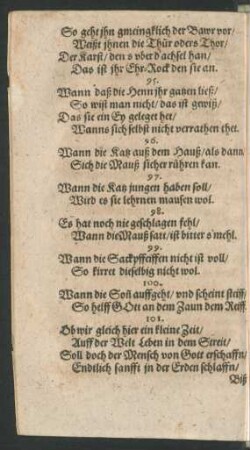 So geht jhn gmeingklich der Bawr vor/
Weißt jhnen die Thür oders Thor/
Der Karst/ den s vber d achsel han/
Das ist jhr Ehr-Rock den sie an.
95.
Wann daß die Henn jhr gatzen ließ/
So wist man nicht/ das ist gewiß/
Das sie ein Ey geleget het/
Wanns sich selbst nicht verrathen thet.
96.
Wann die Katz auß dem Hauß/ als dann
Sich die Mauß sicher rühren kan.
97.
Wann die Katz jungen haben soll/
Wird es sie lehrnen mausen wol.
98.
Es hat noch nie geschlagen fehl/
Wann die Mauß satt/ ist bitter s mehl.
99.
Wann die Sackpfeiffen nicht ist voll/
So kirret dieselbig nicht wol.
100.
Wann die Soñ auffgeht/ vnd scheint steiff/
So helff GOtt an dem Zaun dem Reiff.
101.
Ob wir gleich hier ein kleine Zeit/
Auff der Welt Leben in dem Streit/
Soll doch der Mensch von Gott erschaffn/
Endtlich sanfft in der Erden schlaffn/
Biß